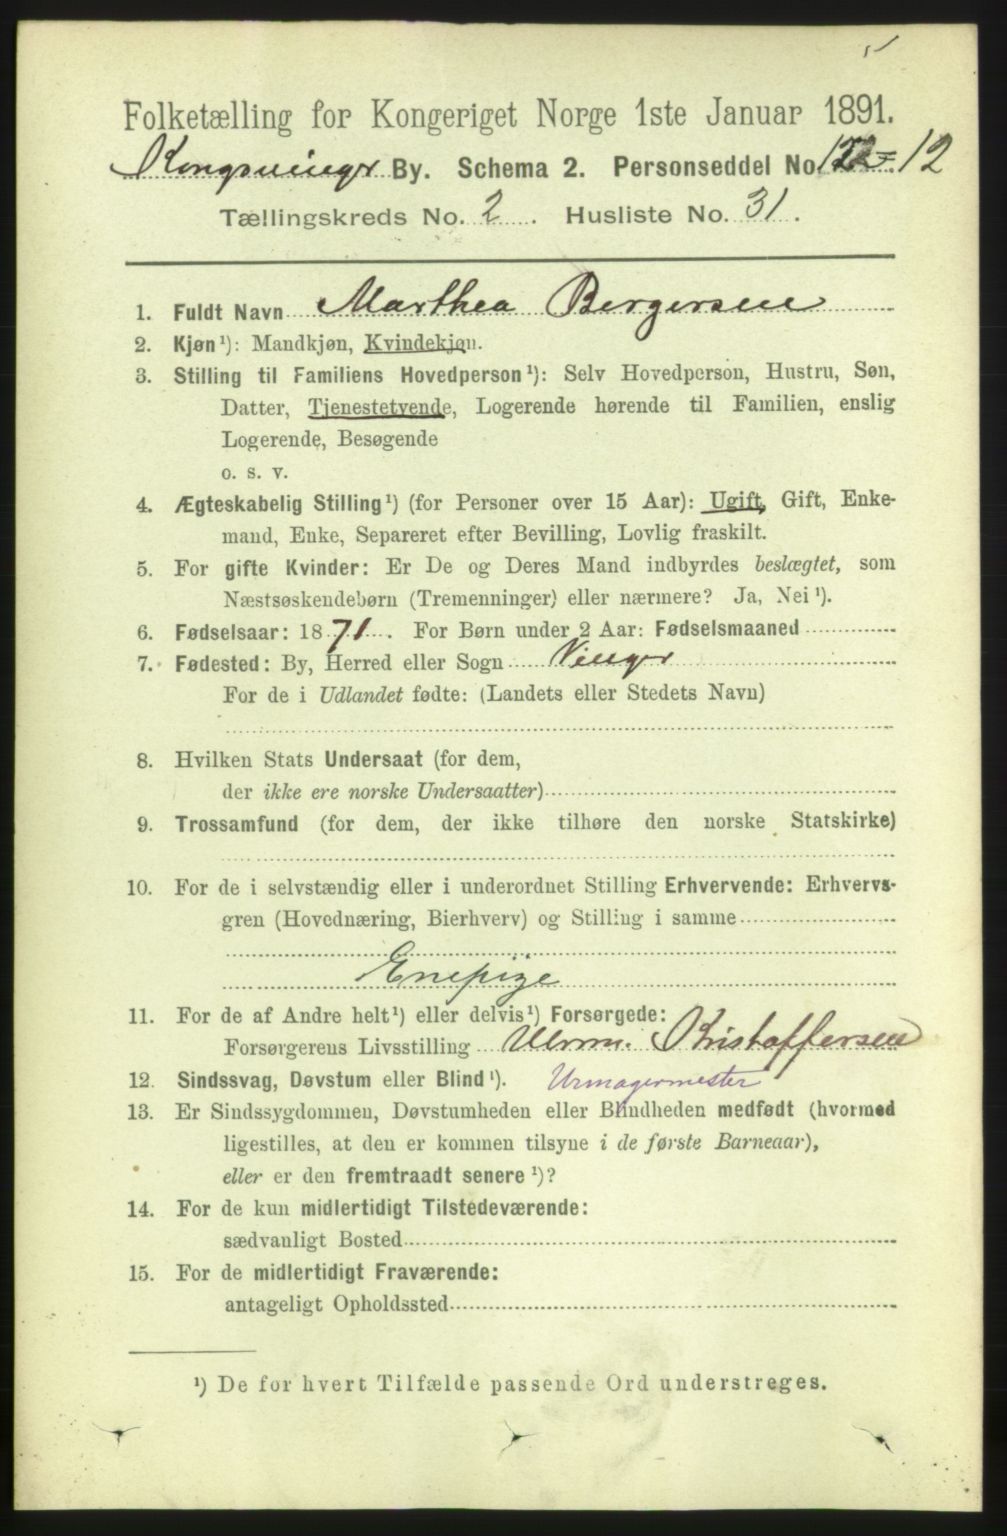 Folketælling for Kongeriget Norge 1ste Januar 1891.
Kongsvinger By. Schema 2. Personseddel No. 12
Tællingskreds No. 2. Husliste No. 31.
1. Fuldt Navn Marthea Bergersen
2. Kjøn¹): Mandkjøn, Kvindekjøn.
3. Stilling til Familiens Hovedperson¹): Selv Hovedperson, Hustru, Søn,
Datter, Tjenestetyende, Logerende hørende til Familien, enslig
Logerende, Besøgende
o. s. v.
4. Ægteskabelig Stilling¹) (for Personer over 15 Aar): Ugift, Gift, Enke-
mand, Enke, Separeret efter Bevilling, Lovlig fraskilt.
5. For gifte Kvinder: Er De og Deres Mand indbyrdes beslægtet, som
Næstsøskendebørn (Tremenninger) eller nærmere? Ja, Nei¹).
6. Fødselsaar: 1871. For Børn under 2 Aar: Fødselsmaaned
7. Fødested: By, Herred eller Sogn Vinger
For de i Udlandet fødte: (Landets eller Stedets Navn)
8. Hvilken Stats Undersaat (for dem,
der ikke ere norske Undersaatter)
9. Trossamfund (for dem, der ikke tilhøre den norske Statskirke)
10. For de i selvstændig eller i underordnet Stilling Erhvervende: Erhvervs-
gren (Hovednæring, Bierhverv) og Stilling i samme
Enepige
11. For de af Andre helt¹) eller delvis¹) Forsørgede:
Forsørgerens Livsstilling Kristoffersen
12. Sindssvag, Døvstum eller Blind¹). Urmagermester
13. Er Sindssygdommen, Døvstumheden eller Blindheden medfødt (hvormed
ligestilles, at den er kommen tilsyne i de første Barneaar),
eller er den fremtraadt senere¹)?
14. For de kun midlertidigt Tilstedeværende:
sædvanligt Bosted
15. For de midlertidigt Fraværende:
antageligt Opholdssted
¹) De for hvert Tilfælde passende Ord understreges.